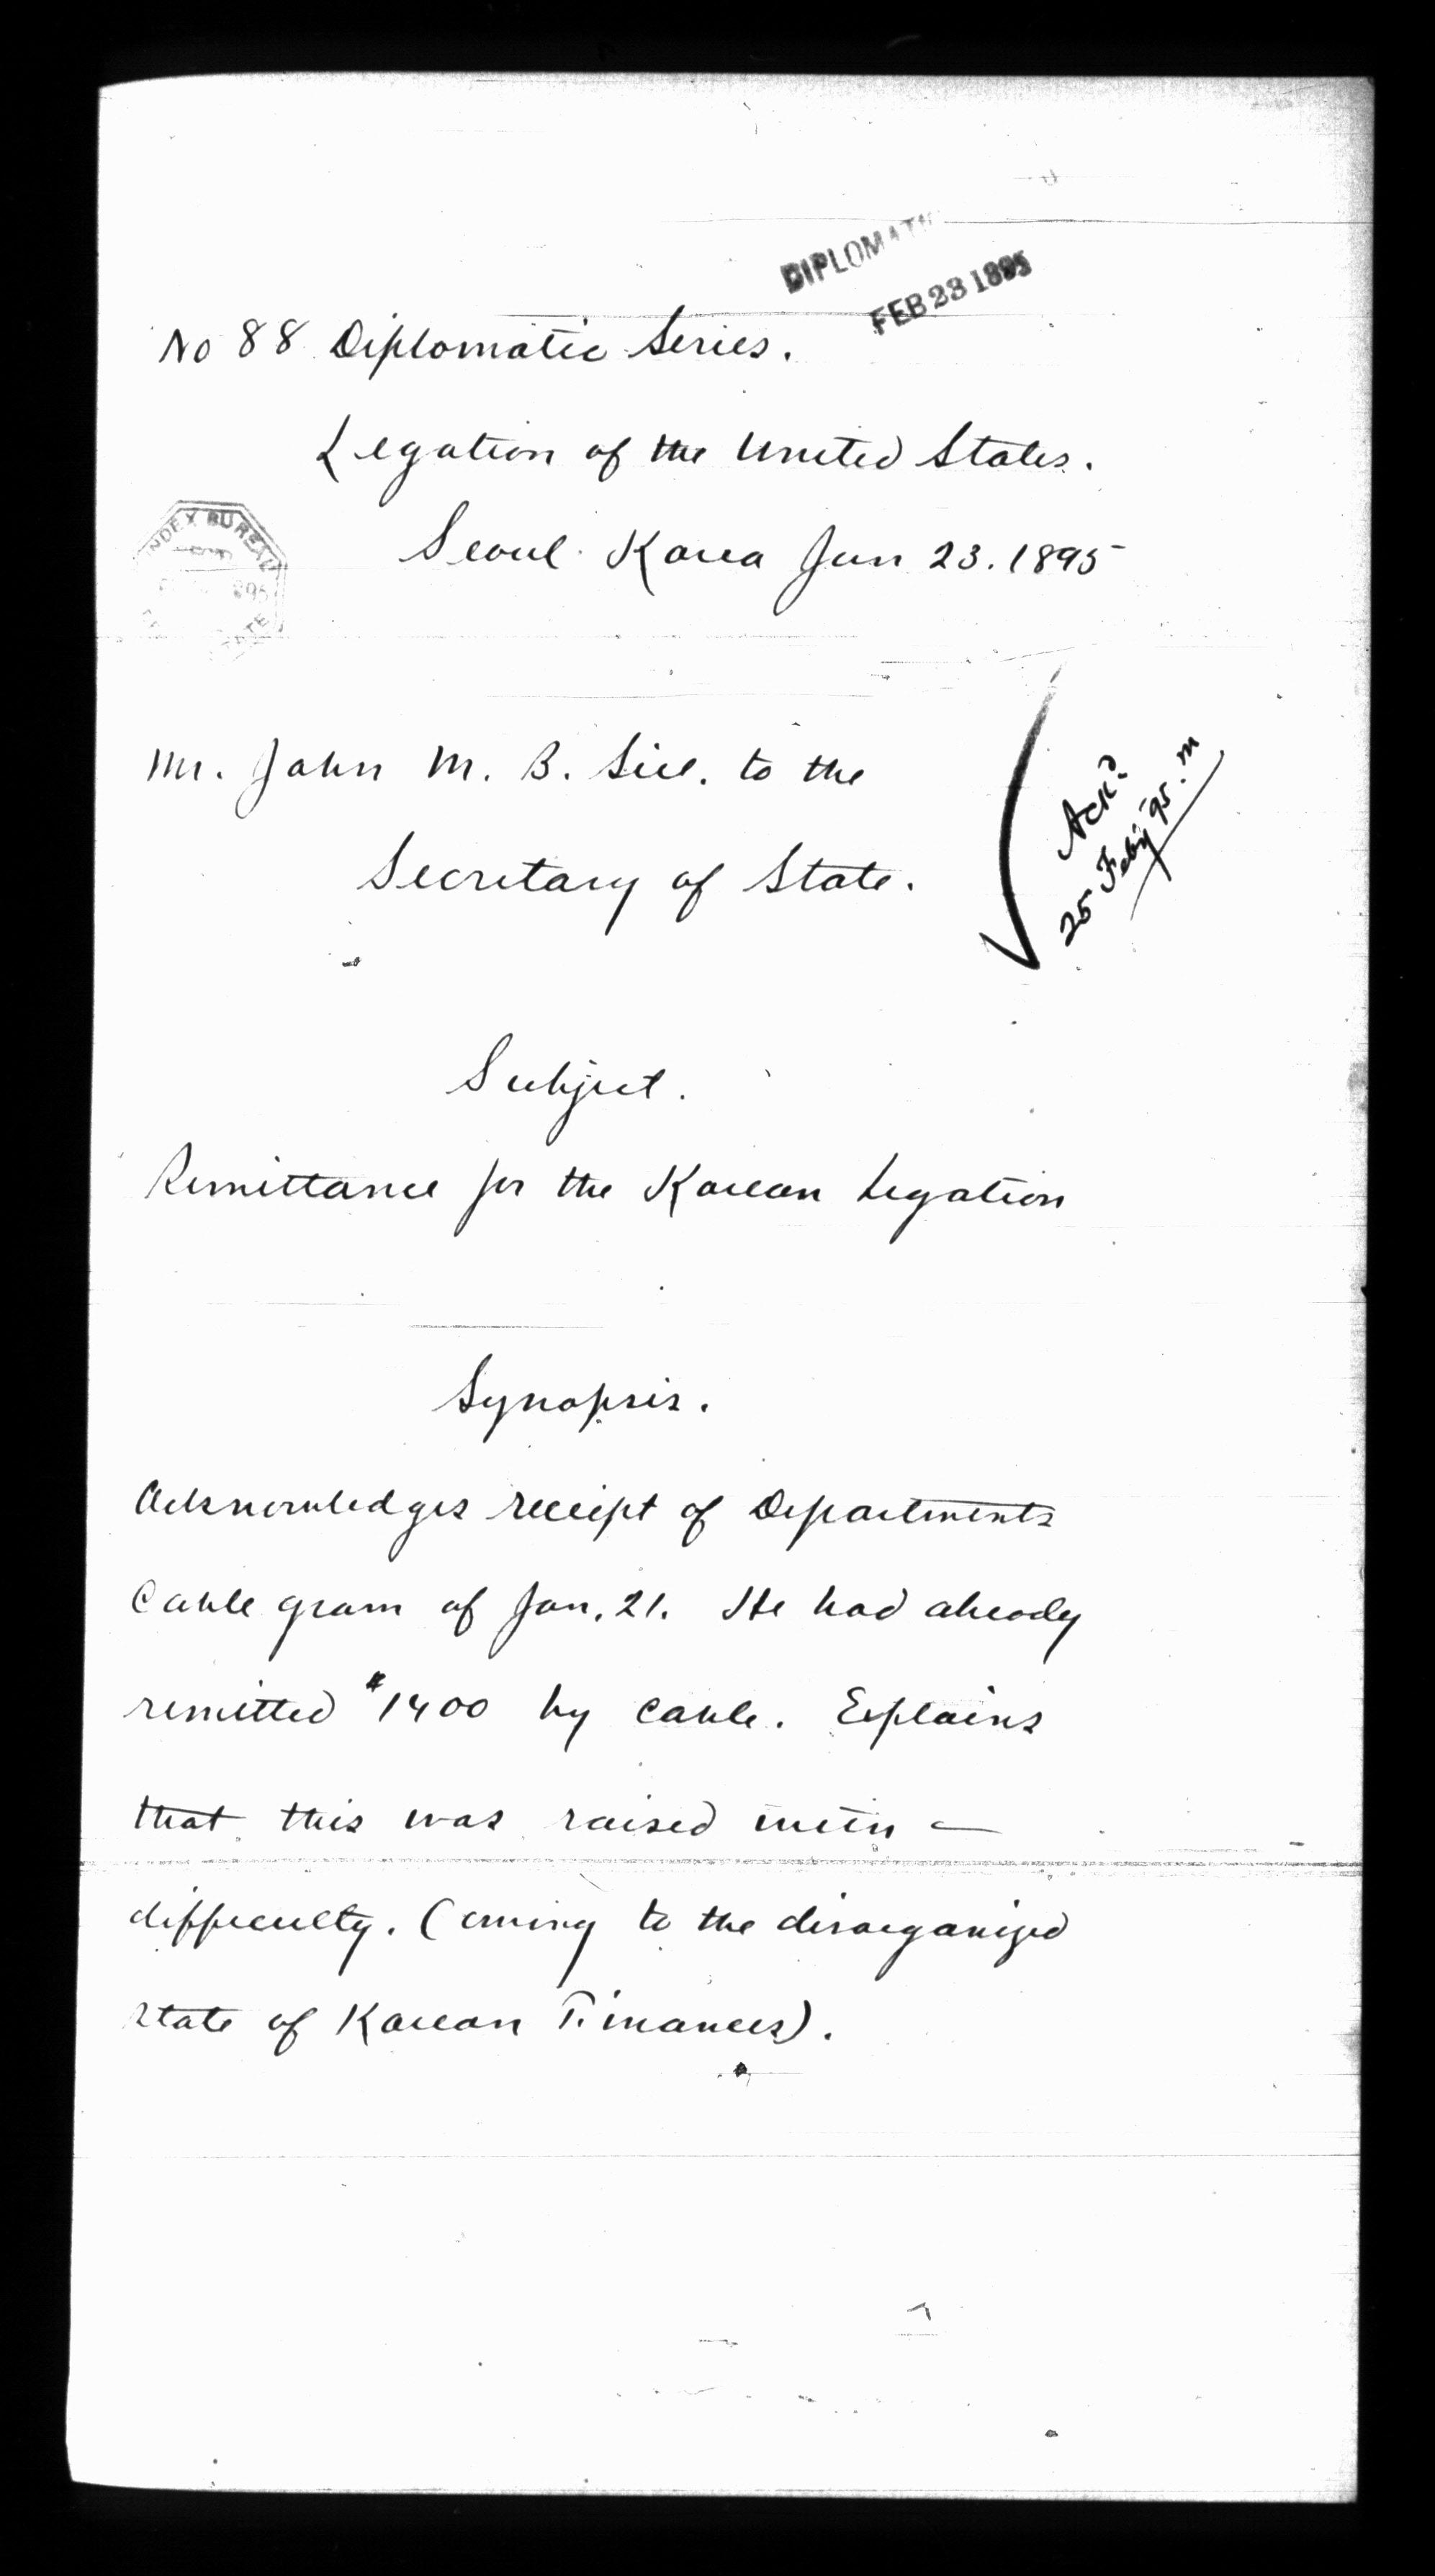 DIPLOMATIC
FEB 23 1895
No 88 Diplomatic Series.
Legation of the United States.
Seoul Korea Jan 23. 1895
INDEX BUREAU
895
STATE
Mr. John M. B. Sill. to the
Secretary of State.
Ack'd
25 Feby '95. M
Subject.
Remittance for the Korean Legation
Synopsis.
Acknowledges receipt of Departments
Cable gram of Jan. 21. He had already
remitted $1400 by cable. Explains
that this was raised with
difficulty. (owing to the disorganized
state of Korean Finances).